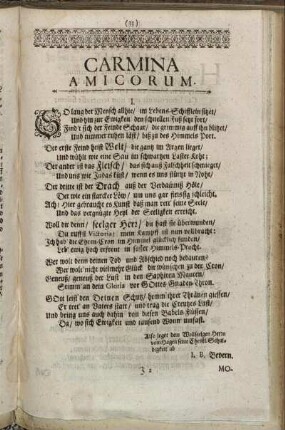 (53)
CARMINA
AMICORUM.
I.
SO lang der Mensch allhie / im Lebens-Schifflein sitzet /
Und ihn zur Ewigkeit den schnellen Fuß setzt fort /
Find't sich der Feinde Schaar / die grimmig auff ihn blitzet /
Und nimmer ruhen läst / biß zu des Himmels Port.
Der erste Feind heist Welt / die gantz im Argen lieget /
Und wühlt wie eine Sau im schwartzen Laster-Koht:
Der ander ist das Fleisch / das sich auß Falschheit schmieget /
Und uns wie Judas küst / wenn es uns stürtzt in Noht /
Der dritte ist der Drach auß der Verdamniß Höle /
Der wie ein starcker Löw / um uns gar grimmig schleicht.
Ach! Hier gebraucht es Kunst daß man rett' seine Seele /
Und das vergnügte Heyl der Seeligkeit erreicht.
Woll dir denn / seelger Herr / du hast sie überwunden /
Du ruffst Victoria; mein Kampff ist nun vollbracht:
Ich hab' die Ehren-Cron im Himmel glücklich funden /
Leb' ewig hoch erfreut in seiner Himmels-Pracht.
Wer wolt denn deinen Tod und Abschied noch bedauren /
Wer wolt nicht vielmehr Glück dir wünschen zu der Cron /
Genieß / genieß der Lust in den Saphiren Mauren /
Stimm' an dein Gloria vor Gottes Gnaden-Thron.
GOtt leist den Deinen Schutz / hemm ihrer Thränen giessen /
Er tret' an Vaters statt / und trag die Creutzes Last /
Und bring uns auch dahin von diesen Babels Flüssen /
Da / wo sich Ewigkeit und tausend Wonn' umfast.
Also
dem Wollseligen Herrn
seine Christl. Schul-
digkeit ab
J. B. Bevern.
MO-